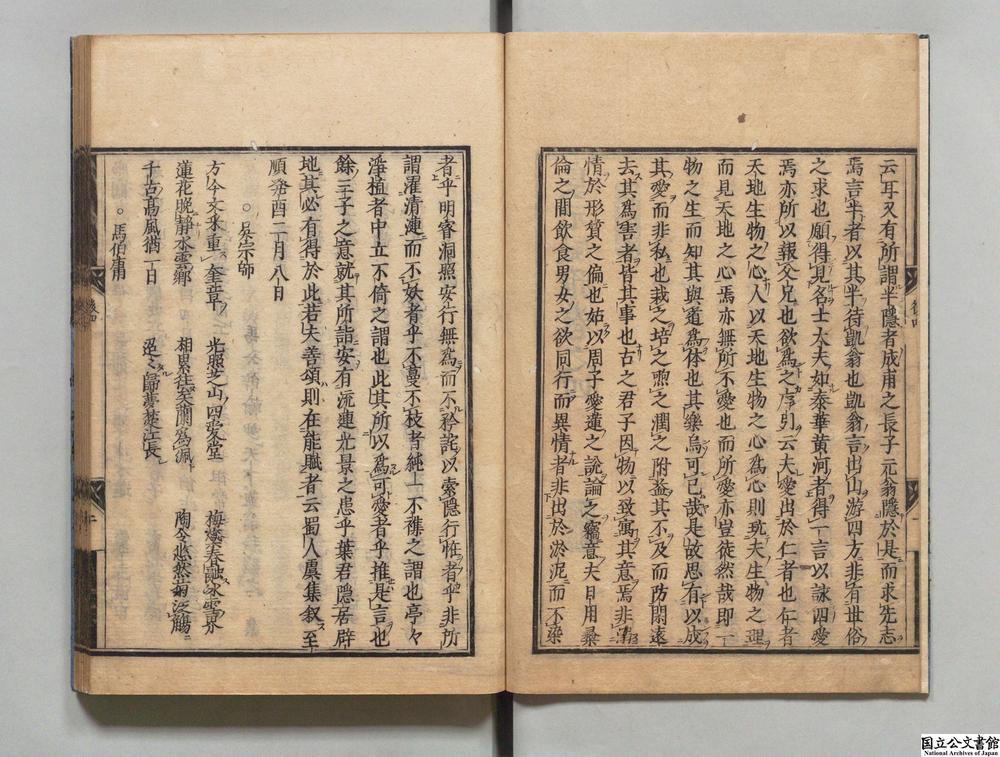 云耳又有所謂半隱者成甫之長子元翁隱於是而求先志
焉言半者以其半待凱翁也凱翁言出山游四方非有世俗
之求也願得見名士大夫如泰華黄河者得一言以詠四愛
焉亦所以報父兄也欲爲之序引云夫愛出於仁者也仁者
天地生物之心人以天地生物之心爲心則玩夫生物之理
而見天地之心焉亦無所不愛也而所愛亦豈徒然哉即一
物之生而知其與道爲体也其樂烏可已哉是故思有以成
其愛而非私也栽之培之煦之潤之附益其不及而防閑遠
去其爲害者皆其事也古之君子因物以致寓其意焉非溺
情於形質之偏也姑以周子愛蓮之説論之竊意夫日用彝
倫之間飲食男女之欲同行而異情者非出於淤泥而不染
者乎明睿洞照安行無爲而不矜詫以索隱行恠者乎非所
謂濯清漣而不妖者乎不蔓不枝者純上不襍之謂也亭々
淨植者中立不倚之謂也此其所以爲可愛者乎推是言也
餘三子之意就其所詣安有流連光景之患乎葉君隱居辟
地其必有得於此若夫善頌則在能賦者云蜀人虞集叙至
順癸酉二月八日
○吳宗師
方今文采重奎章 光照芝山四愛堂 梅蘂春融冰雪界
蓮花晩靜水雲郷 相累往矣蘭爲佩 陶令悠然菊泛觴
千古髙風猶一日 迢々歸夢楚江長
○馬伯庸
後四
十
国立公文書館
National Archives of Japan